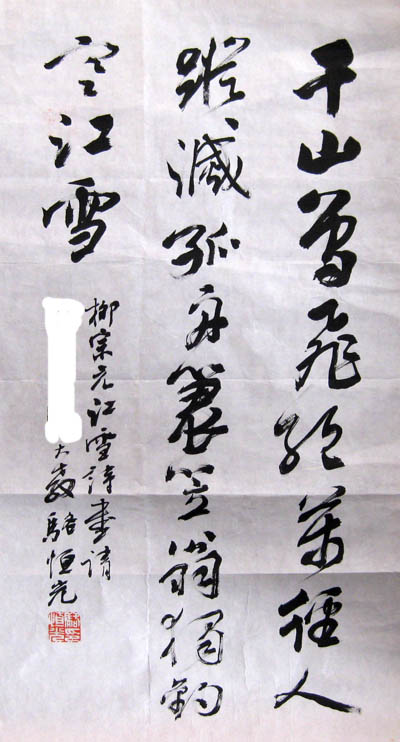 千山鳥飛絕萬徑人
蹤滅孤舟蓑笠翁獨釣
寒江雪
柳宗元江雪詩書請
大教駱恒光